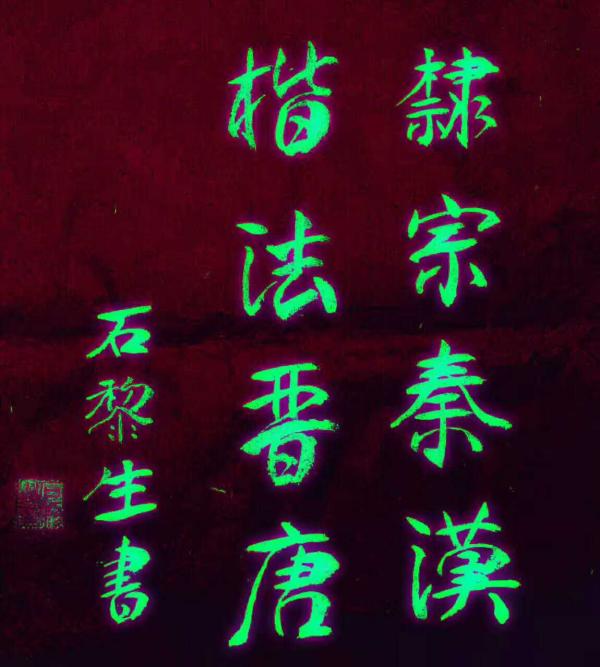 隸宗秦漢
楷法晋唐
石黎生書